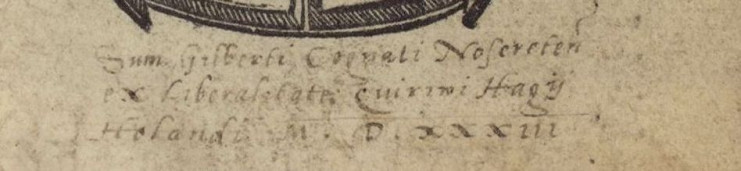 Sum Gilberti Cognati Nosereten̄
ex Liberalitate Quirini Hagij
Holandi M. D. XXXIII